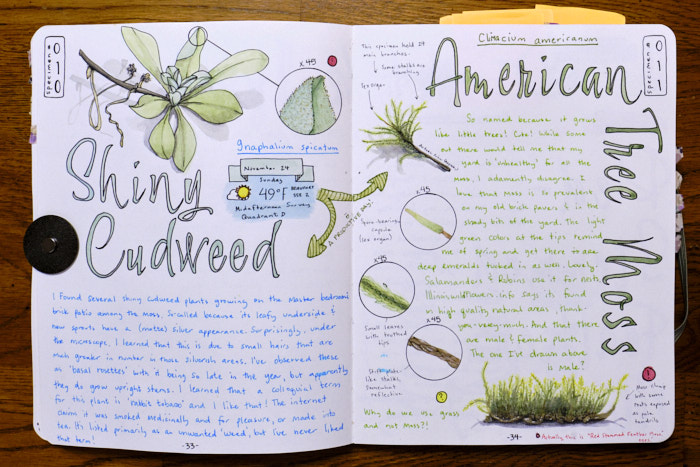 specimen
010
x 45
gnaphalium spicatum
Shiny
Cudweed
November 24
Sunday
49°F
Midafternoon Survey
Quadrant D
A PRODUCTIVE DAY!
I found several Shiny Cudweed plants growing on the master bedroom
brick patio among the moss. So called because its leafy underside &
new sprouts have a (matte) silver appearance. Surprisingly, under
the microscope, I learned that this is due to small hairs that are
much greater in number in those silverish areas. I've observed these
as "basal rosettes" with it being so late in the year, but apparently
they do grow upright stems. I learned that a colloquial term
for this plant is "rabbit tobacco" and I like that! The internet
claims it was smoked medicinally and for pleasure, or made into
tea. It's listed primarily as an unwanted "weed," but I've never liked
that term!
-33-
Climacium americanum
American
Tree Moss
specimen
011
This specimen held
main branches.
Some stalks are
branching
So named because it grows
like little trees! Cute! While some
out there would tell me that my
yard is "unhealthy" for all the
moss, I adamantly disagree. I
love that moss is so prevalent
on my old brick pavers & in the
shady bits of the yard. The light
green colors at the tips remind
me of spring and yet there are
deep emeralds tucked in as well. Lovely.
Salamanders & Robins use it for nests.
Illinoiswildflowers.info says it's found
in high quality natural areas, thank-
you-very-much. And that there
are male & female plants.
The one I've drawn above
is male?
x45
Spore-bearing
capsule
(sex organ)
x45
Small leaves
with toothed
tips
x45
like stalks,
somewhat
reflective
Why do we use grass
and not moss?!
Moss clump
with some
roots exposed
as pale
tendrils
-34-
Actually this is "Red Stemmed Feather Moss"